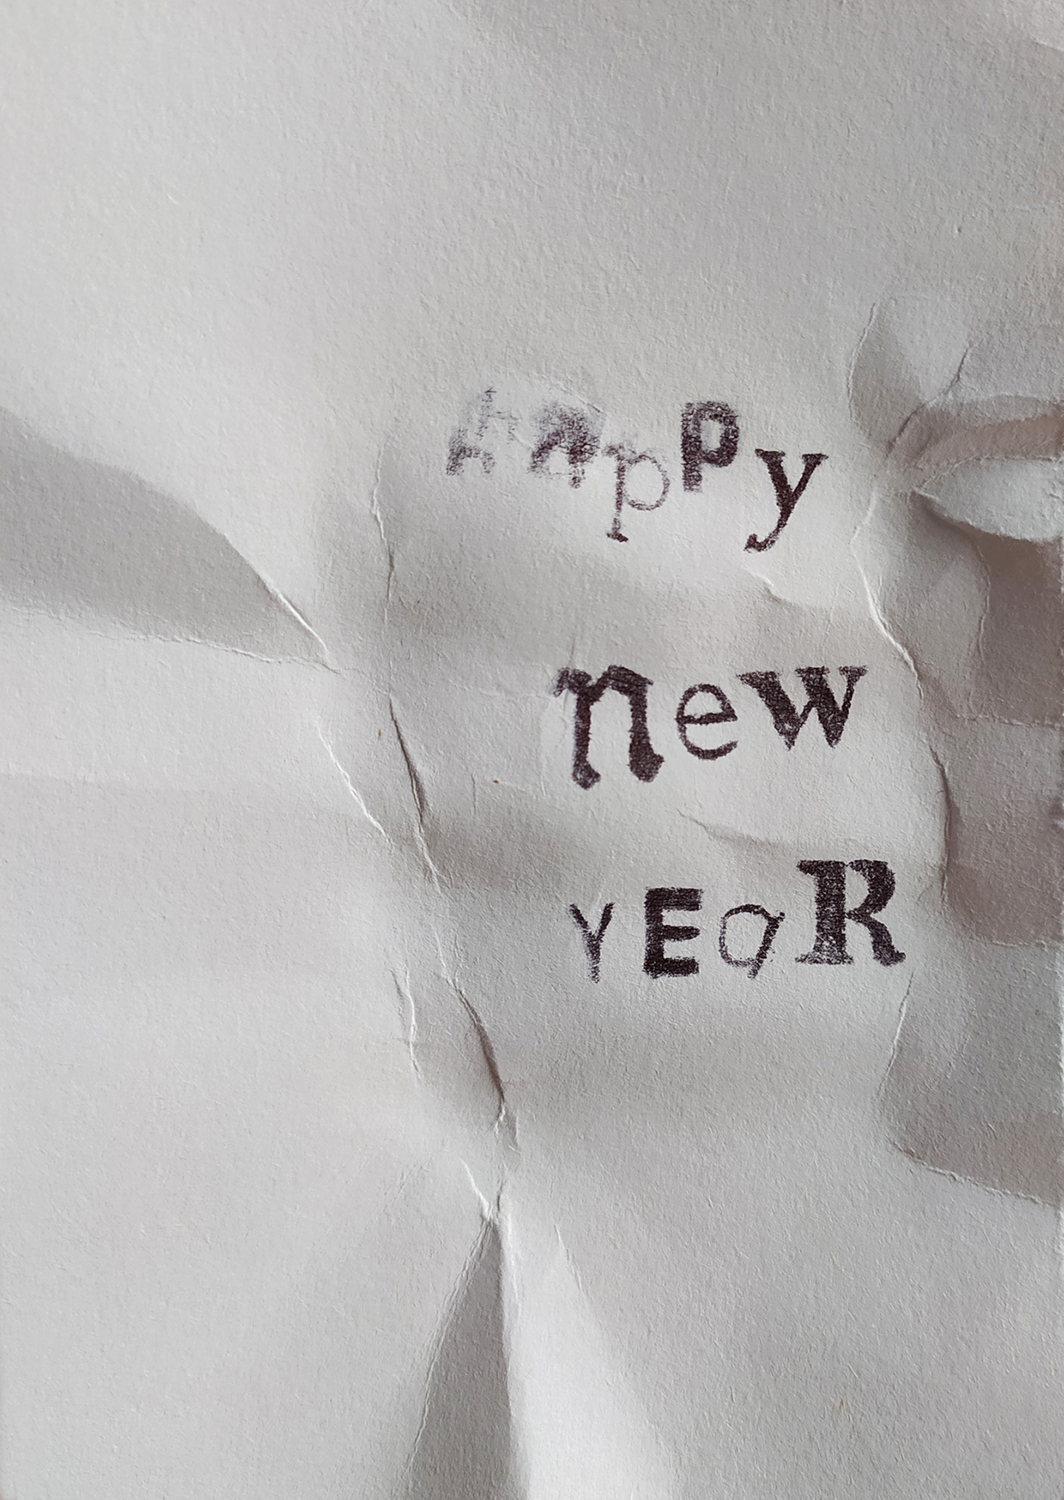 happy
new
YEaR